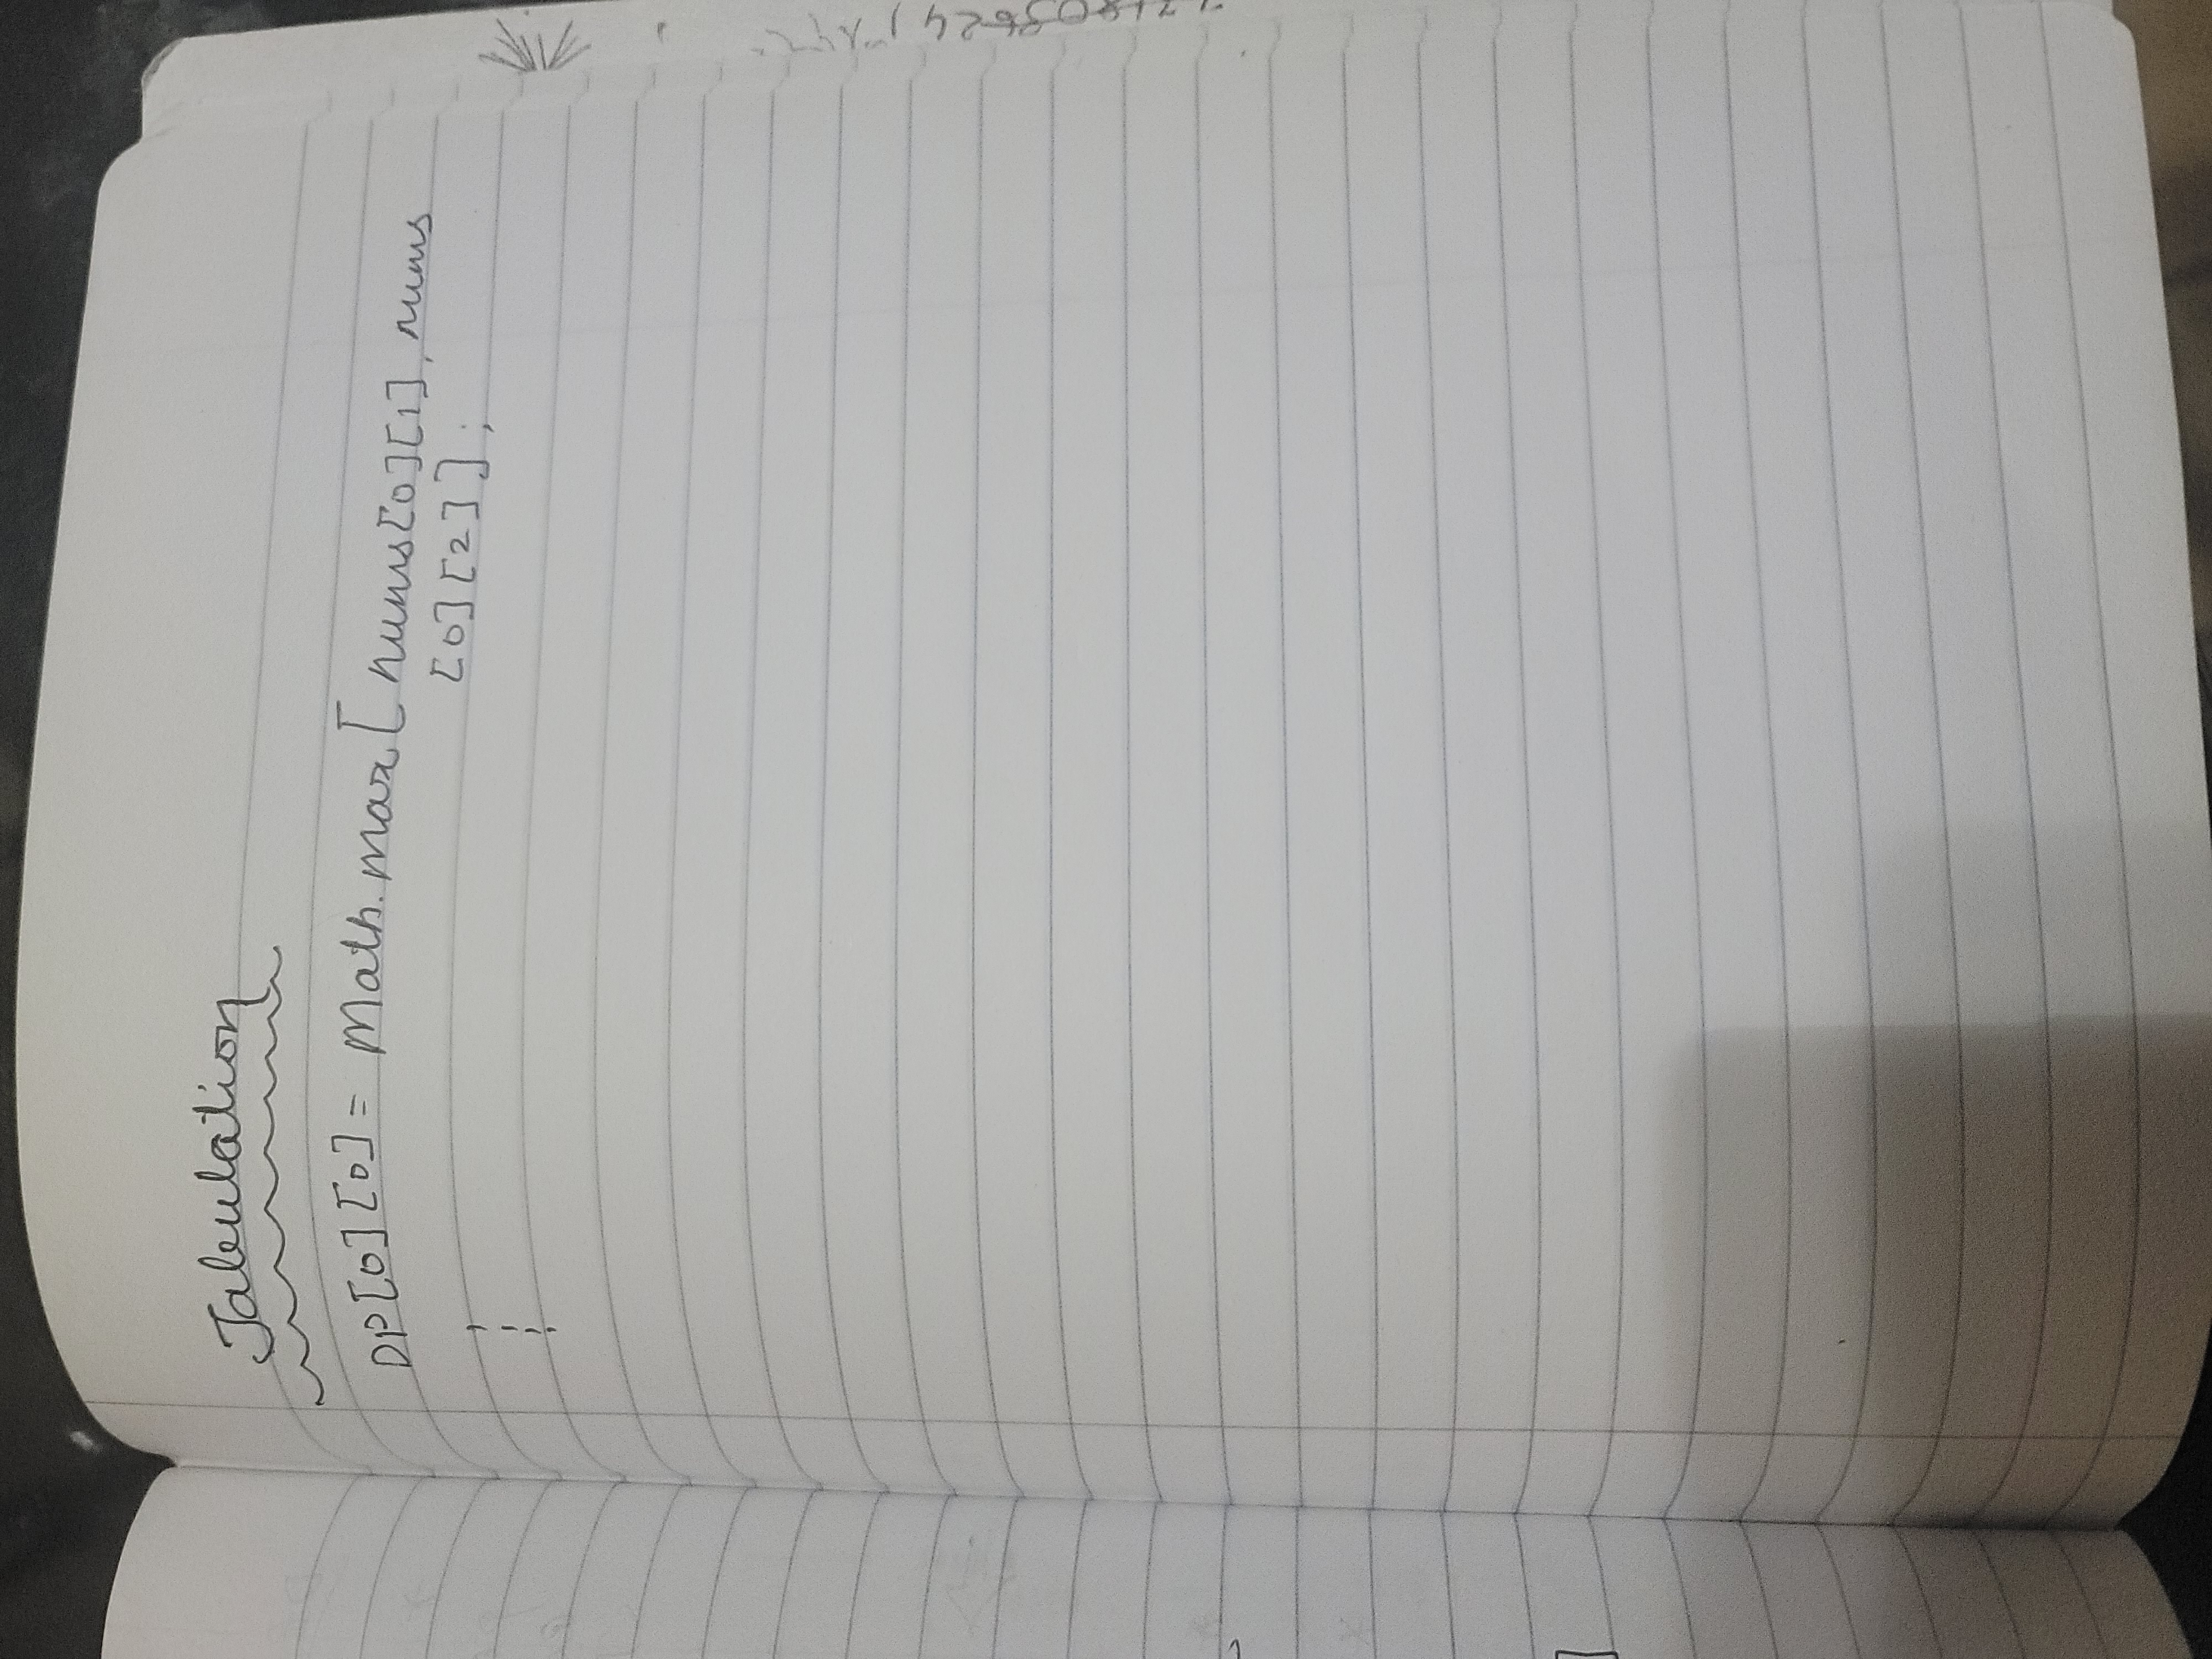 Tabulation
DP[0][0] = Math.max[nums[0][1], nums
[0][2]];